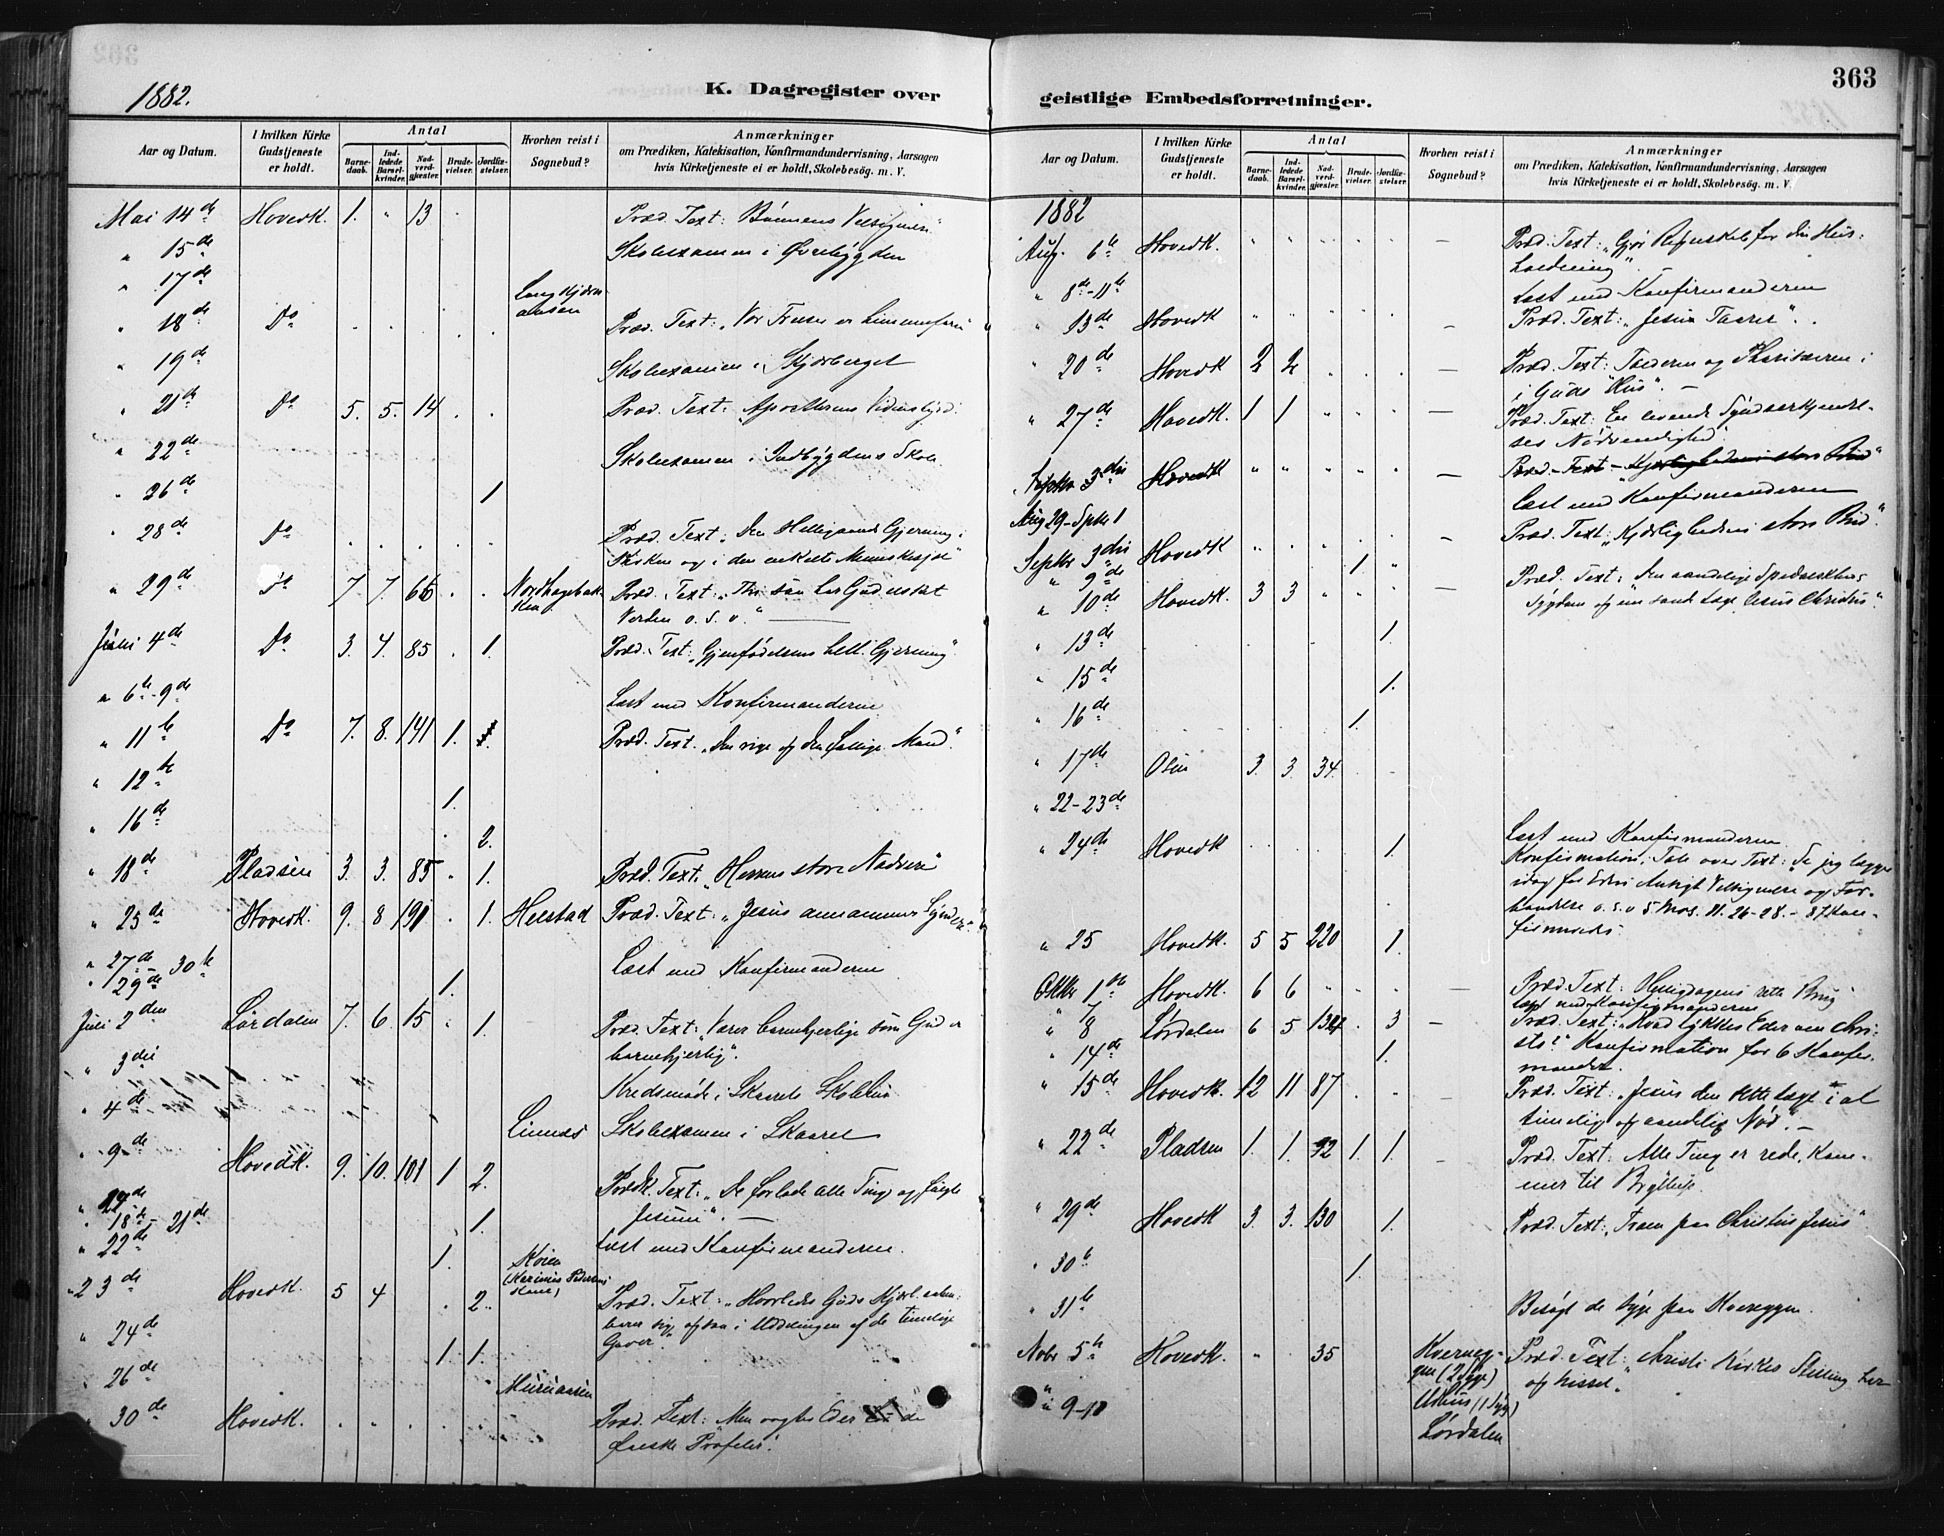 1882.
K. Dagregister over
Aar og Datum.
I hvilken Kirke Gudstjeneste er holdt.
Antal
Barnedaab.
Indledede Barselkvinder.
Nadverdgjæster.
Brudevielser.
Jordfæstelser.
Hvorhen reist i Sognebud?
Anmærkninger
om Prædiken, Katekisation, Konfirmandundervisning, Aarsagen
hvis Kirketjeneste ei er holdt, Skolebesøg. m. V.
Mai 14de Hovedk. 1. " 13 Præd. Text: Bønnens Velsignelse
" 15de Skolexamen i Øvrebygden
" 17de
" 18de Do Præd. Text: Vor Frelser er
" 19de Skolexamen i Skjærberget
" 21de Do 5. 5. 14 Præd. Text: Apostlenes Vidnesbyrd.
" 22de Skolexamen i Indbygdens Skole
" 26de 1
" 28de Do Præd. Text: Den Helligaands Gjerning i
Kirken og i den enkelte Menneskesjel"
" 29de Do 7 7. 66 Præd. Text: "Thi saa har Gud elsket
Verden o. s. v."
Juni 4de Do 3. 4. 85 1. Præd. Text: "Gjenfødelsens hell. Gjerning".
" 6te-9de Læst med Konfirmanderne
" 11te Do 7. 8. 141 1. Præd. Text. "Den rige og den fattige Mand".
" 12te 1.
" 16de 2.
" 18de Pladsen 3. 3. 85 1. Præd. Text. "Herrens store Nadvere"
" 25de Hovedk. 9. 8 191 1. Heestad Præd. Text: "Jesus annammer Syndere"
" 27de 30te Læst med Konfirmanderne
" 29de 1.
Juli 2den Lørdalen 7. 6. 15 1. Præd. Text: "Værer barmhjertige som Gud er
barmhjertig".
" 3die Kredsmøde i Skaarets Skolehus
" 4de Linnæs Skolexamen i Skaaret
" 9de Hovedk. 9. 10. 101 1 2. Præd. Text: "De forlode alle Ting og fulgte
Jesum".
" 18de 21de 1. Læst med Konfirmanderne.
" 22de 1.
" 23de Hovedk. 5 4 2. Præd. Text: "Hvorledes Guds Kjærl. aaben-
barer sig ogsaa i Uddelingen af de timelige
Gaver"
" 24de 1. 1.
" 26de
" 30de Hovedk. Præd. Text: Men vogter Eder for de
falske Profeter.
363
geistlige Embedsforretninger.
Aar og Datum.
I hvilken Kirke Gudstjeneste er holdt.
Antal
Barnedaab.
Indledede Barselkvinder.
Nadverdgjæster.
Brudevielser.
Jordfæstelser.
Hvorhen reist i Sognebud?
Anmærkninger
om Prædiken, Katekisation, Konfirmandundervisning, Aarsagen
hvis Kirketjeneste ei er holdt, Skolebesøg. m. V.
1882
Aug. 6te Hovedk. Præd. Text: "Gjør Regnskab for din Hus-
holdning".
" 8de-11te Læst med Konfirmanderne
" 13de Hovedk Præd. Text: "Jesu Taarer".
" 20de Hovedk 2 2 Præd. Text: Tolderen og Pharisæeren i
i Guds Hus".
" 27de Hovedk. 1 1 Præd. Text: En levende Syndserkjendel-
ses Nødvendighed.
Septbr 3die Hovedk Præd. Text - Kjærlighedens store Bud"
Aug 29-Septbr 1 Læst med Konfirmanderne
Septbr 3die Hovedk Præd. Text: "Kjærlighedens store Bud".
" 9de 1.
" 10de Hovedk. 3 3 Præd. Text: Den aandelige Spedalskheds
Sygdom og den sande Læge Jesus Christus".
" 13de 1.
" 15de 1.
" 16de 1.
" 17de Osen 3. 3. 34.
" 22-23de Læst med Konfirmanderne
" 24de Hovedk 1. Konfirmation. Tale over Text: Se jeg lægger
idag for Eders Ansigt Velsignelse og For-
bandelse o.s.v 5 Mos. 11. 26-28. - 87 Kon-
firmerede.
" 25 Hovedk. 5 5 220 1.
Oktbr 1ste Hovedk. 6 6 Præd. Text: Helligdagens rette Brug
" 7 læst med Konfirmanderne
" 8 Lørdalen 6 5 134 3 Præd. Text: "Hvad tykkes Eder om Chri-
sto?" Konfirmation for 6 Konfir-
mander.
" 14de 1.
" 15de Hovedk. 12 11 87 Præd. Text: "Jesus den rette Læge i al
timelig og aandelig Nød".
" 22de Pladsen 1. 1. 92 1. 1. Præd. Text: Alle Ting er rede, Kom-
mer til Bryllup.
" 29de Hovedk 3. 3. 130 1. Præd. Text: "Troen paa Christus Jesus"
" 30te 1.
" 31te Besøgt de syge paa Kvereggen.
Nobr 5te Hovedk. 35 Præd. Text: "Christi Kirkes Stilling her
og hisset."
" 9-10 Lørdalen